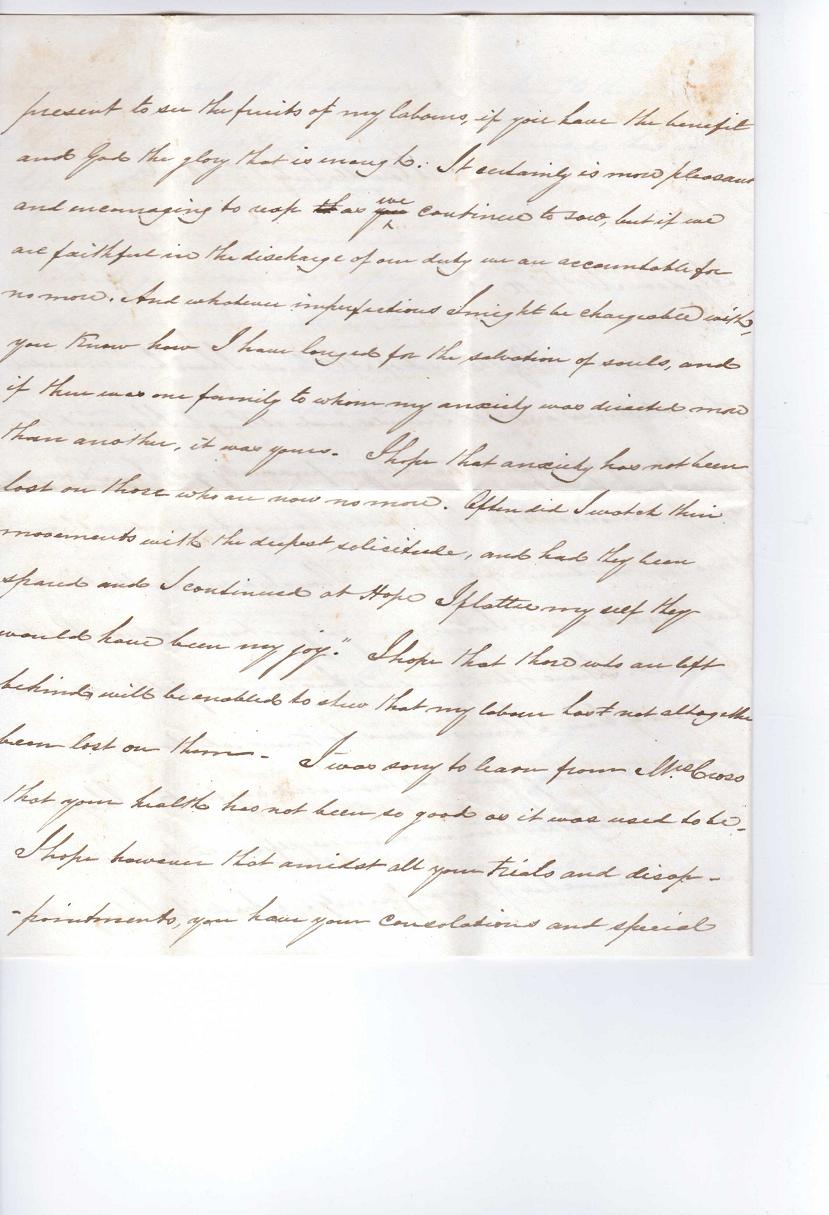 present to see the fruits of my labours, if you have the benefit
and God the glory that is enough. It certainly is more pleasant
and encouraging to reap th as you we continue to sow, but if we
are faithful in the discharge of our duty we are accountable for
no more. And whatever imperfections I might be chargeable with,
you know how I have longed for the salvation of souls, and
if there was one family to whom my anxiety was directed more
than another, it was yours. I hope that anxiety has not been
lost on those who are now no more. Often did I watch their
movements with the deepest solicitude, and had they been
spared and I continued at Hope I flatter my self they
would have been my joy." I hope that those who are left
behind, will be enabled to shew that my labour has not altogether
been lost on them - I was sorry to learn from Mrs. Cross
that your health has not been so good as it was used to be -
I hope however that amidst all your trials and disap -
- pointments, you have your consolations and special